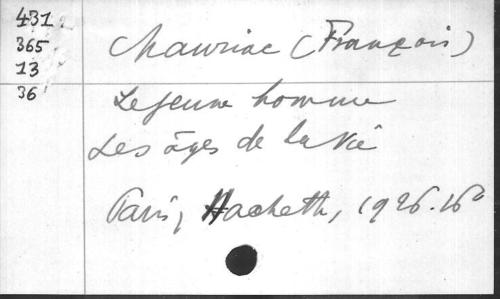 431
365
13
36
Mauriac (François)
Le jeune homme
Les âges de la vie
Paris, Hachette, 1926. 16º